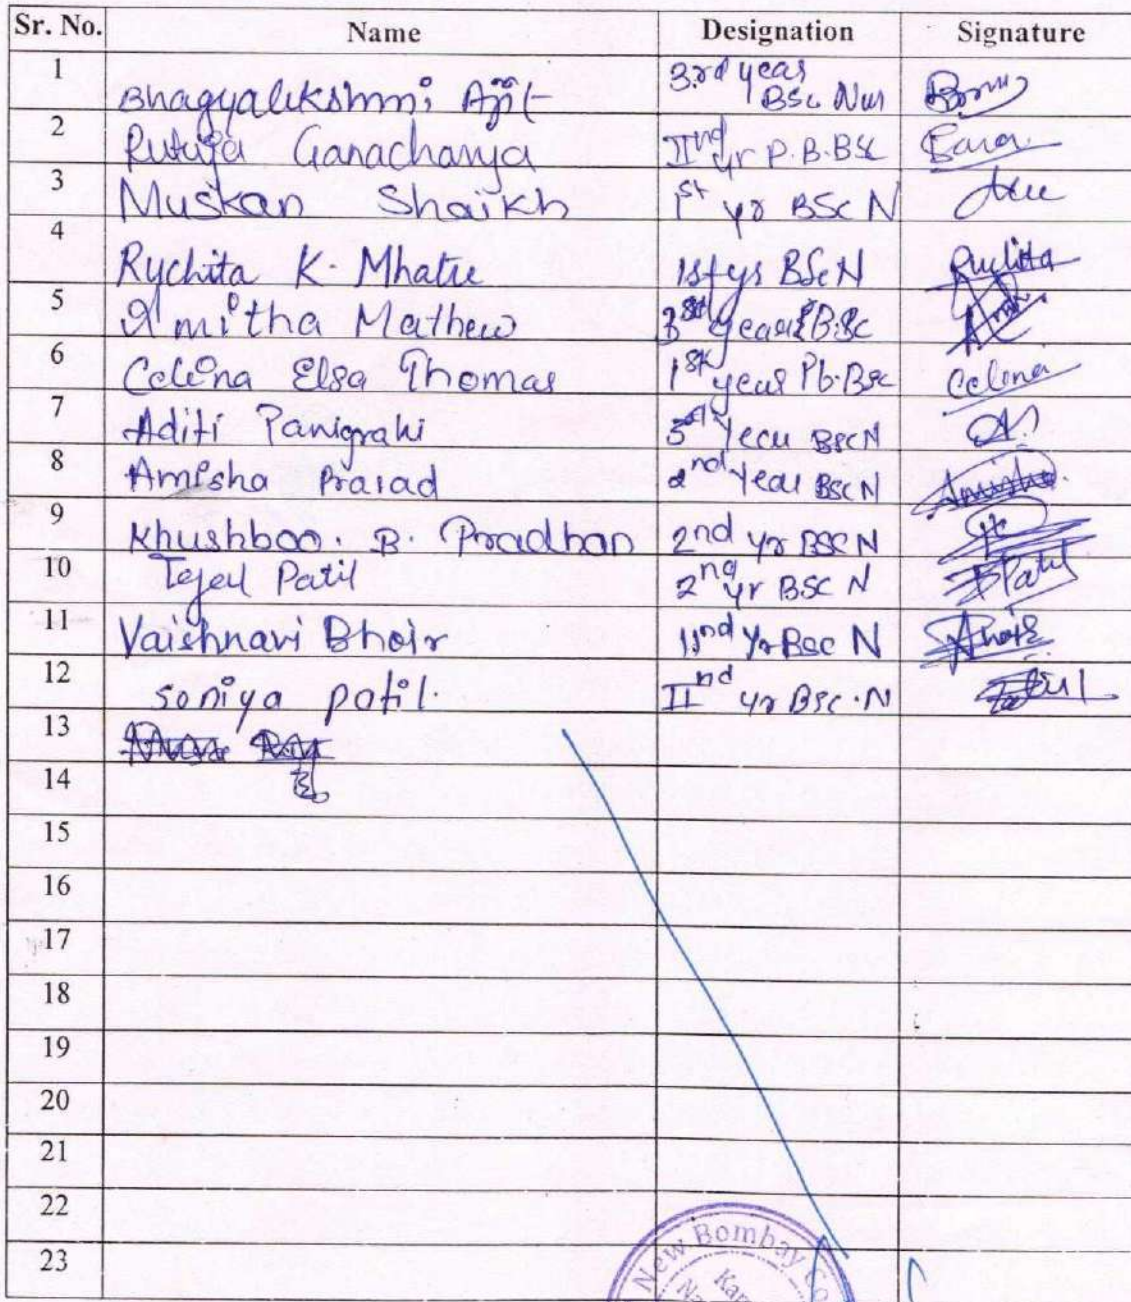 Sr. No. Name Designation Signature
1 Bhagyalekshmi Ajit 3rd year BSc Nur
2 Rutuja Ganacharya IInd yr P.B.BSc
3 Muskan Shaikh 1st yr BSc N
4 Rychita K. Mhatre 1st yr BSc N Ruchita
5 Amitha Mathew year B.Sc
6 Celina Elsa Thomas 1st year Pb.Bsc Celina
7 Aditi Panigrahi year BSC N
8 Amisha Prasad 2nd Year BSC N Amisha
9 Khushboo. B. Pradhan 2nd yr BSC N
10 Tejal Patil 2nd yr BSC N Patil
11 Vaishnavi Bhoir IInd Yr Bsc N
12 soniya patil. IInd yr BSC.N
13
14
15
16
17
18
19
20
21
22
23
New Bombay Co